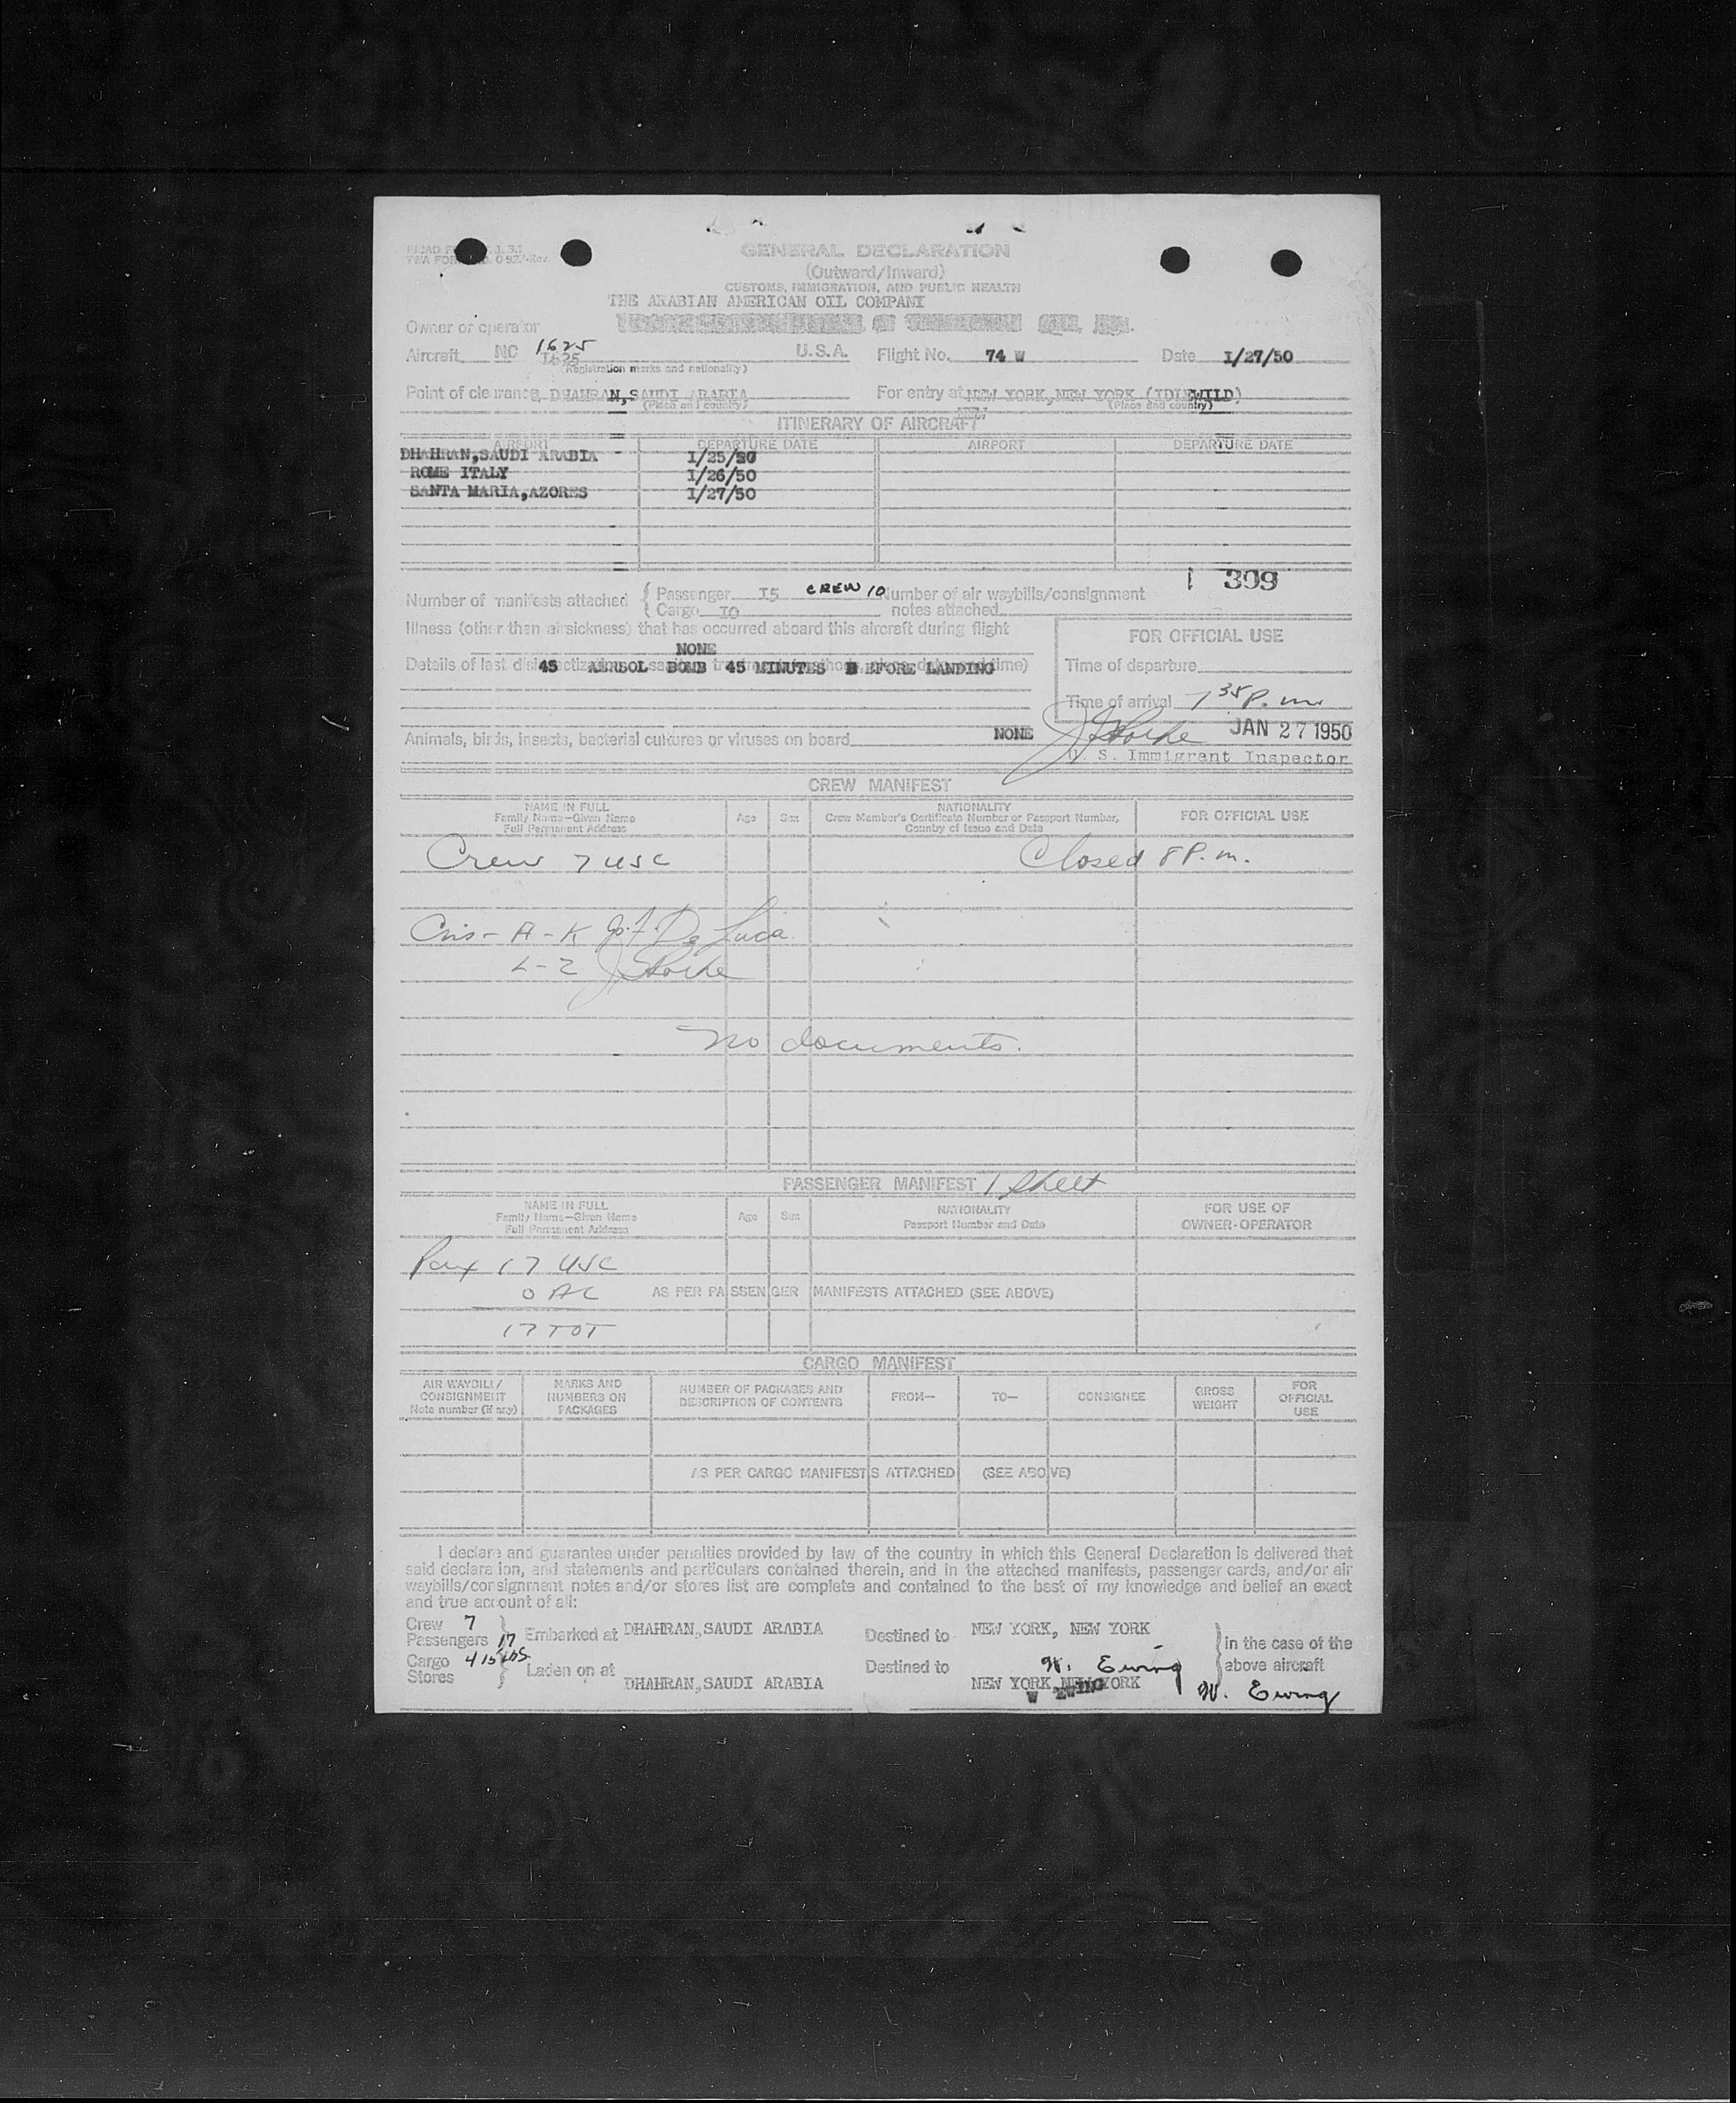 GENERAL DECLARATION
(Outward/Inward)
CUSTOMS, IMMIGRATION, AND PUBLIC HEALTH
THE ARABIAN AMERICAN OIL COMPANY
Owner or operator
Aircraft NC 1625 1625 U.S.A. Flight No. 74 W Date 1/27/50
(Registration marks and nationality)
Point of clearance DHAHRAN,SAUDI ARABIA For entry at NEW YORK,NEW YORK (IDLEWILD)
(Place and country) (Place and country)
ITINERARY OF AIRCRAFT
AIRPORT DEPARTURE DATE AIRPORT DEPARTURE DATE
DHAHRAN,SAUDI ARABIA 1/25/50
ROME ITALY 1/26/50
SANTA MARIA,AZORES 1/27/50
1 309
Number of manifests attached { Passenger 15 CREW 10 Number of air waybills/consignment
{ Cargo 10 notes attached
Illness (other than airsickness) that has occurred aboard this aircraft during flight
NONE
Details of last 45 AERSOL BOMB 45 MINUTES BEFORE LANDING time)
FOR OFFICIAL USE
Time of departure
Time of arrival 7 35 P.m.
Animals, birds, insects, bacterial cultures or viruses on board NONE
JAN 27 1950
U. S. Immigrant Inspector
CREW MANIFEST
NAME IN FULL
Family Name—Given Name
Full Permanent Address
Age Sex
NATIONALITY
Crew Member's Certificate Number or Passport Number,
Country of Issue and Date
FOR OFFICIAL USE
Crew 7 USC Closed 8 P.m.
A - K J. F. De Luca
L-Z
No documents.
PASSENGER MANIFEST 1 Sheet
NAME IN FULL
Family Name—Given Name
Full Permanent Address
Age Sex
NATIONALITY
Passport Number and Date
FOR USE OF
OWNER-OPERATOR
Pax 17 USC
0 AC AS PER PASSENGER MANIFESTS ATTACHED (SEE ABOVE)
17 TOT
CARGO MANIFEST
AIR WAYBILL/
CONSIGNMENT
Note number (if any)
MARKS AND
NUMBERS ON
PACKAGES
NUMBER OF PACKAGES AND
DESCRIPTION OF CONTENTS
FROM— TO— CONSIGNEE
GROSS
WEIGHT
FOR
OFFICIAL
USE
AS PER CARGO MANIFESTS ATTACHED (SEE ABOVE)
I declare and guarantee under penalties provided by law of the country in which this General Declaration is delivered that
said declaration, and statements and particulars contained therein, and in the attached manifests, passenger cards, and/or air
waybills/consignment notes and/or stores list are complete and contained to the best of my knowledge and belief an exact
and true account of all:
Crew 7
Passengers 17 } Embarked at DHAHRAN,SAUDI ARABIA Destined to NEW YORK, NEW YORK
Cargo 415 LBS
Stores } Laden on at DHAHRAN,SAUDI ARABIA Destined to NEW YORK,NEW YORK
} in the case of the
above aircraft
W. Ewing
W EWING
W. Ewing